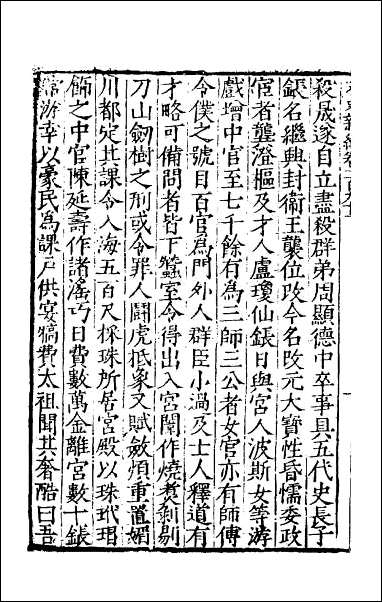 宋史新編卷一百九十
殺晟遂自立盡殺群弟周顯德中卒事具五代史長子
鋹名繼興封衛王襲位改今名改元大寶性昏懦委政
宦者龔澄樞及才人盧瓊仙鋹日與宮人波斯女等游
戲增中官至七千餘有為三師三公者女官亦有師傅
令僕之號目百官為門外人群臣小過及士人釋道有
才略可備問者皆下蠶室令得出入宮闈作燒煮剝剔
刀山劒樹之刑或令罪人鬪虎抵象又賦斂煩重置媚
川都定其課令入海五百尺採珠所居宮殿以珠玳瑁
飾之中官陳延壽作諸淫巧日費數萬金離宮數十鋹
常游幸以豪民為課戶供宴犒費太祖聞其奢酷曰吾